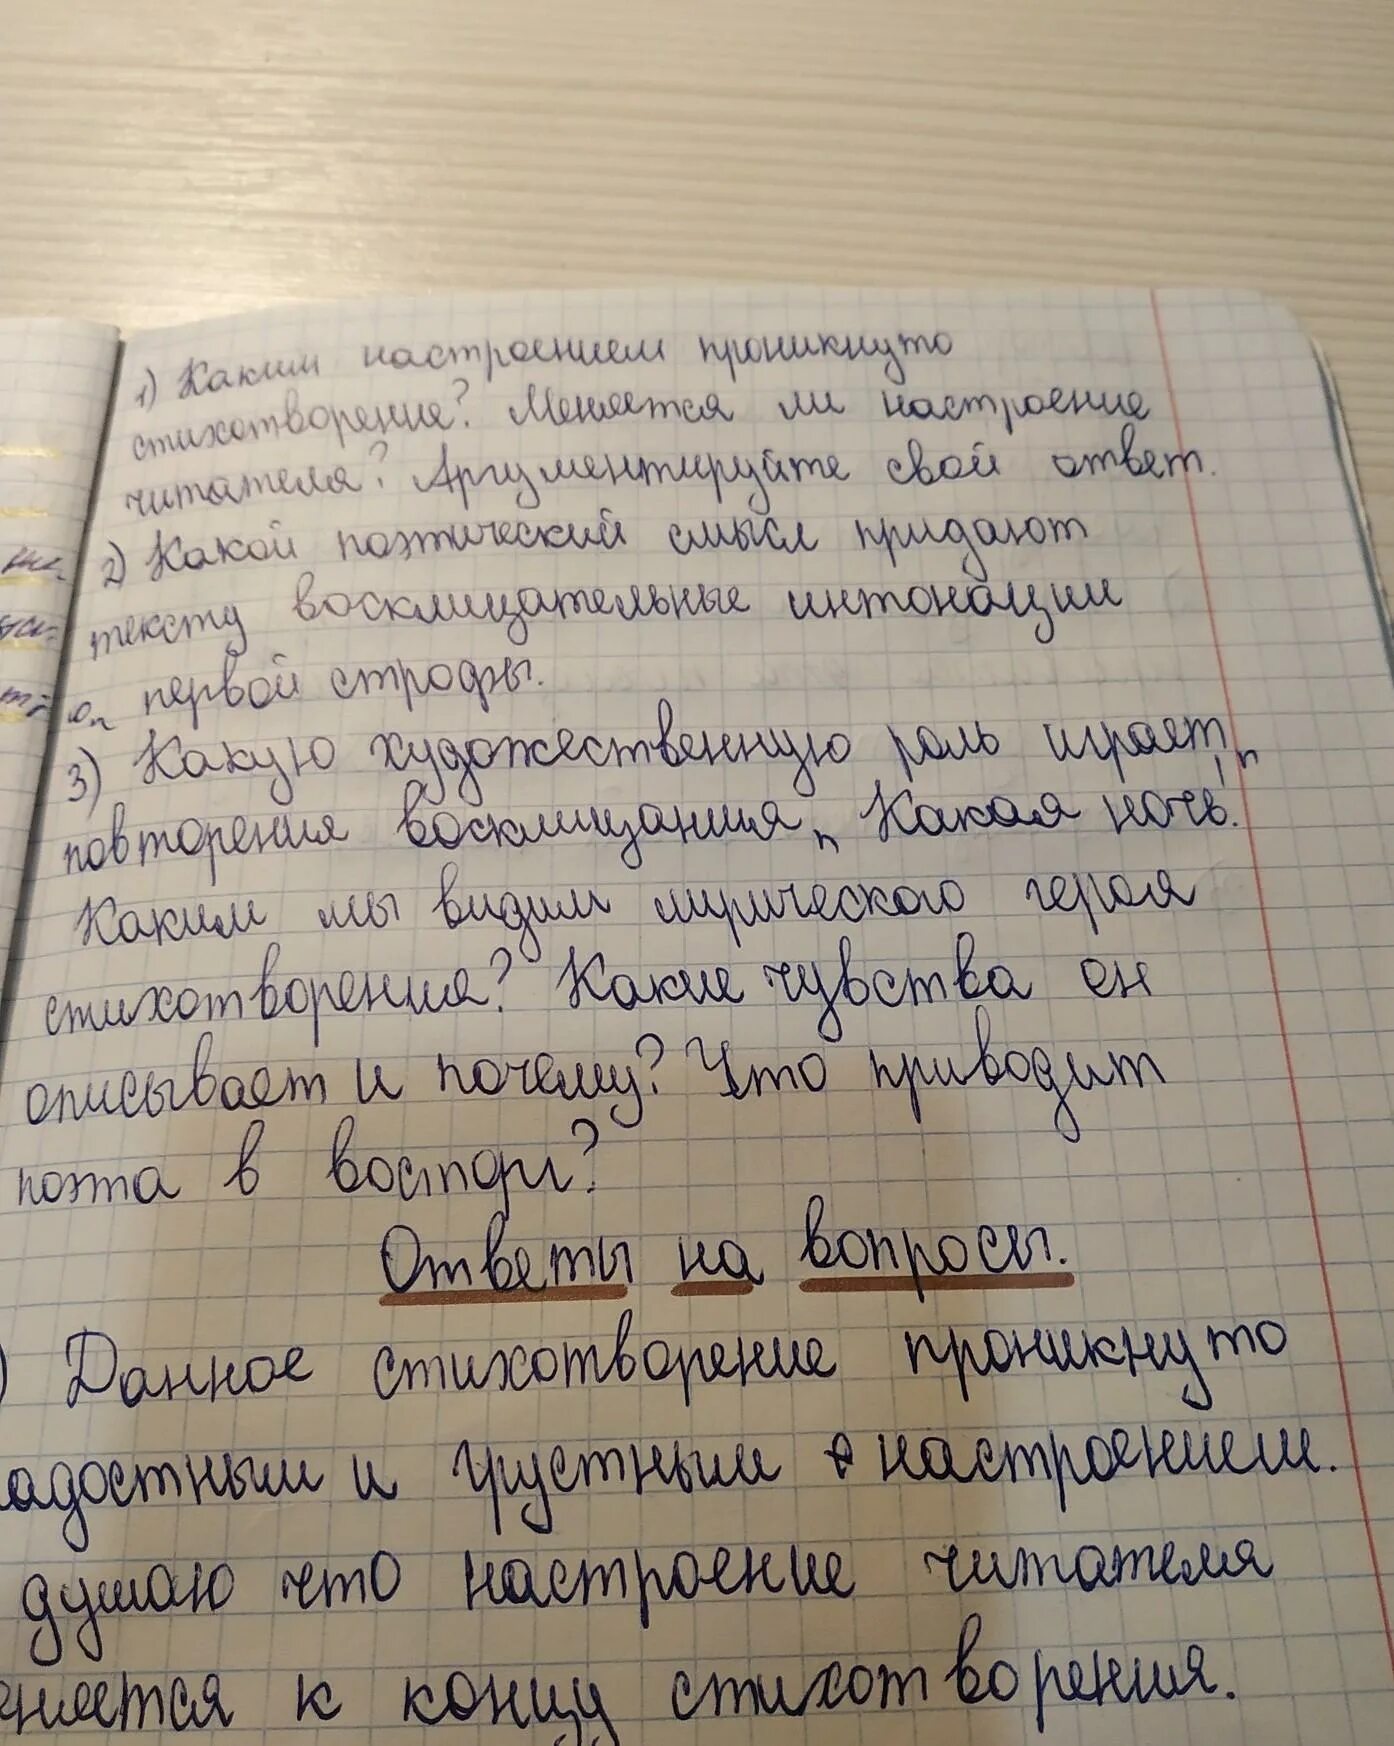 1) Каким настроением проникнуто
стихотворение? Меняется ли настроение
читателя? Аргументируйте свой ответ.
2) Какой поэтический смысл придают
тексту восклицательные интонации
первой строфы.
3) Какую художественную роль играет
повторения восклицания „Какая ночь!"
Каким мы видим лирического героя
стихотворения? Какие чувства он
описывает и почему? Что приводит
поэта в восторг?
Ответы на вопросы.
) Данное стихотворение проникнуто
адостным и грустным настроением.
думаю что настроение читателя
няется к концу стихотворения.